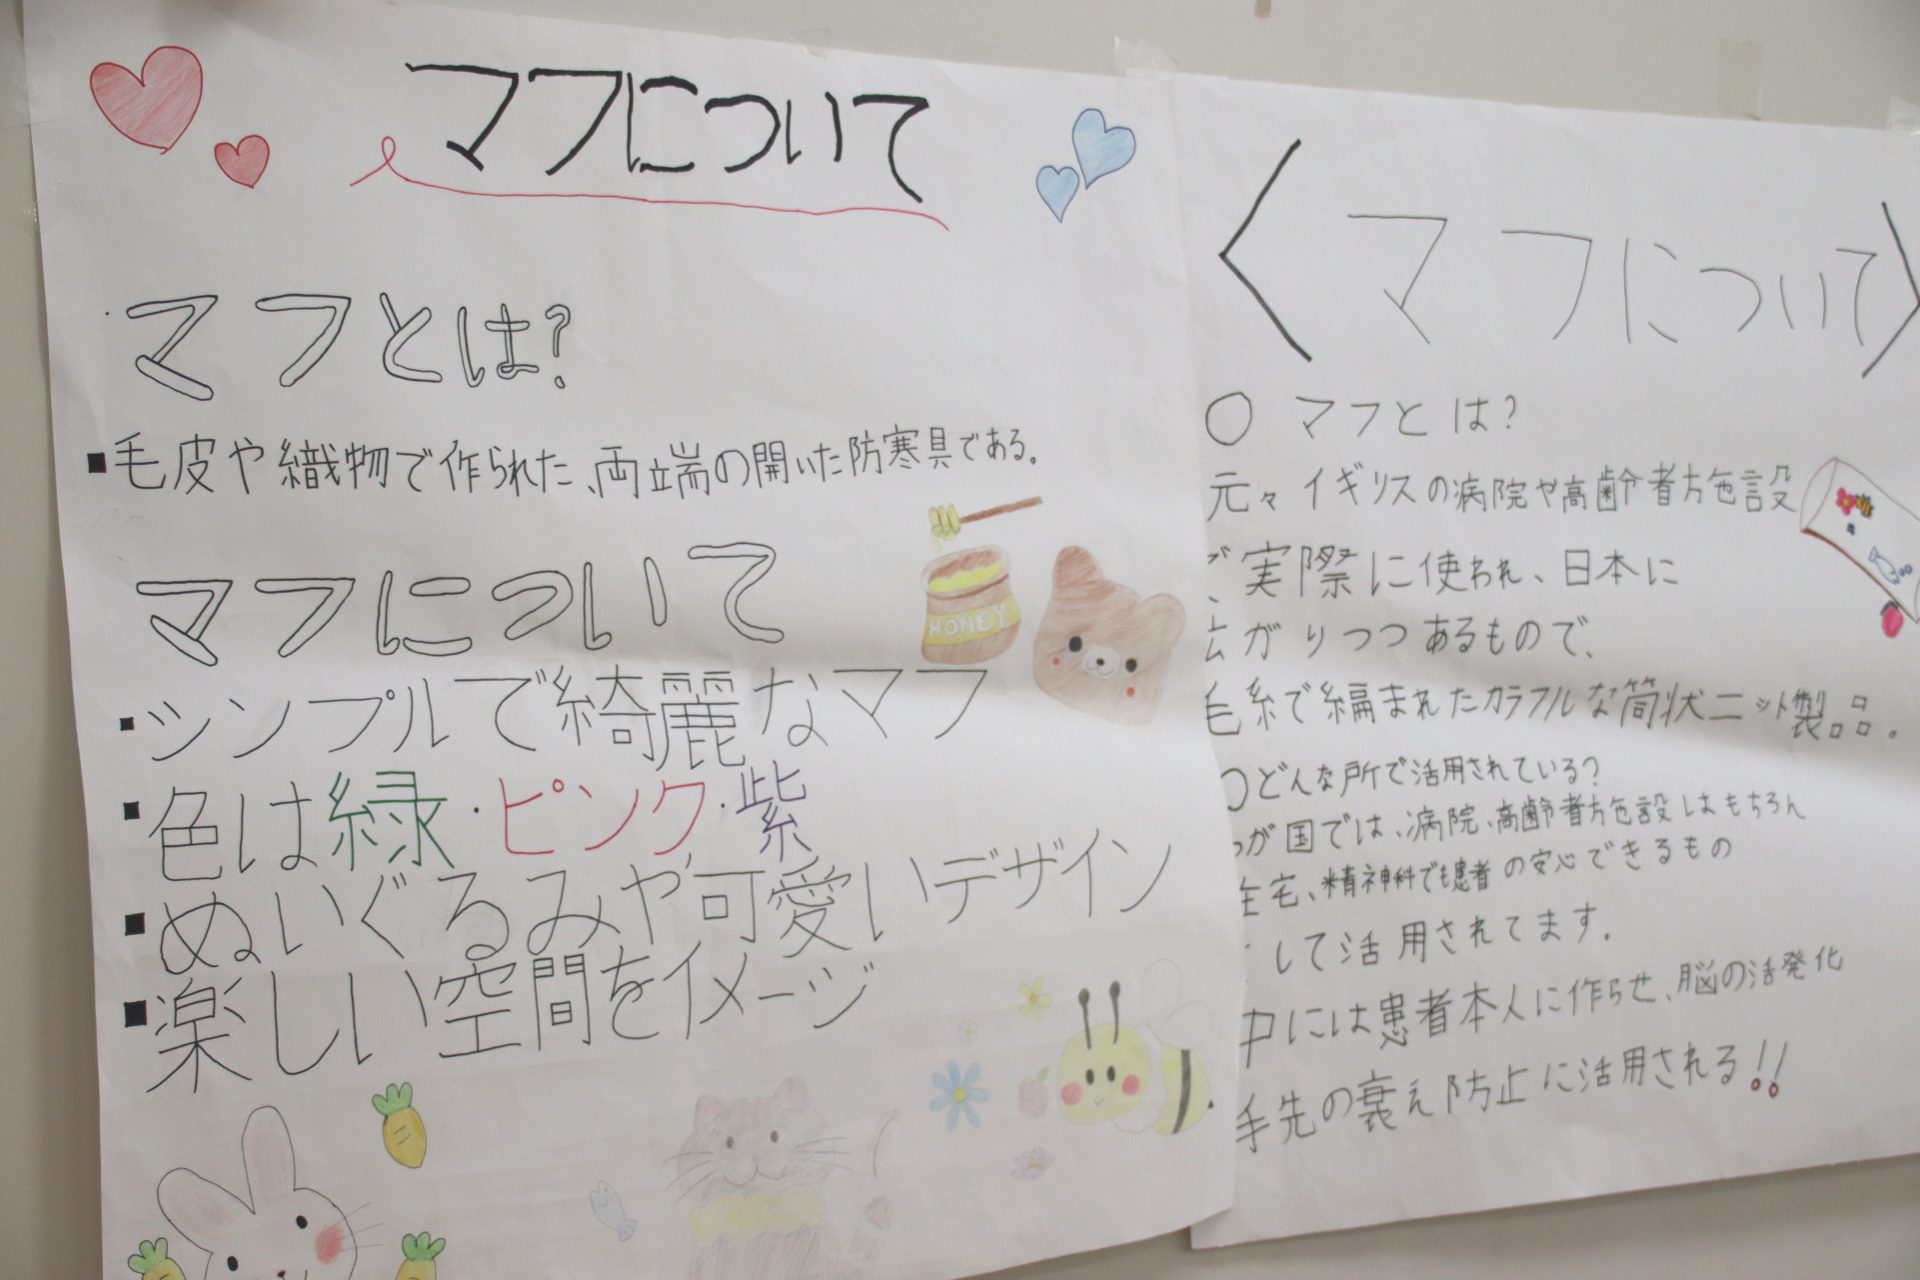 マフについて
マフとは?
▪毛皮や織物で作られた、両端の開いた防寒具である。
マフについて
▪シンプルで綺麗なマフ
▪色は緑・ピンク・紫
▪ぬいぐるみや可愛いデザイン
▪楽しい空間をイメージ
HONEY
〈マフについて〉
○ マフとは?
元々イギリスの病院や高齢者施設
で実際に使われ、日本に
広がりつつあるもので、
毛糸で編まれたカラフルな筒状ニット製品。
○どんな所で活用されている?
わが国では、病院、高齢者施設はもちろん
在宅、精神科でも患者の安心できるもの
として活用されてます。
中には患者本人に作らせ、脳の活発化
手先の衰え防止に活用される!!